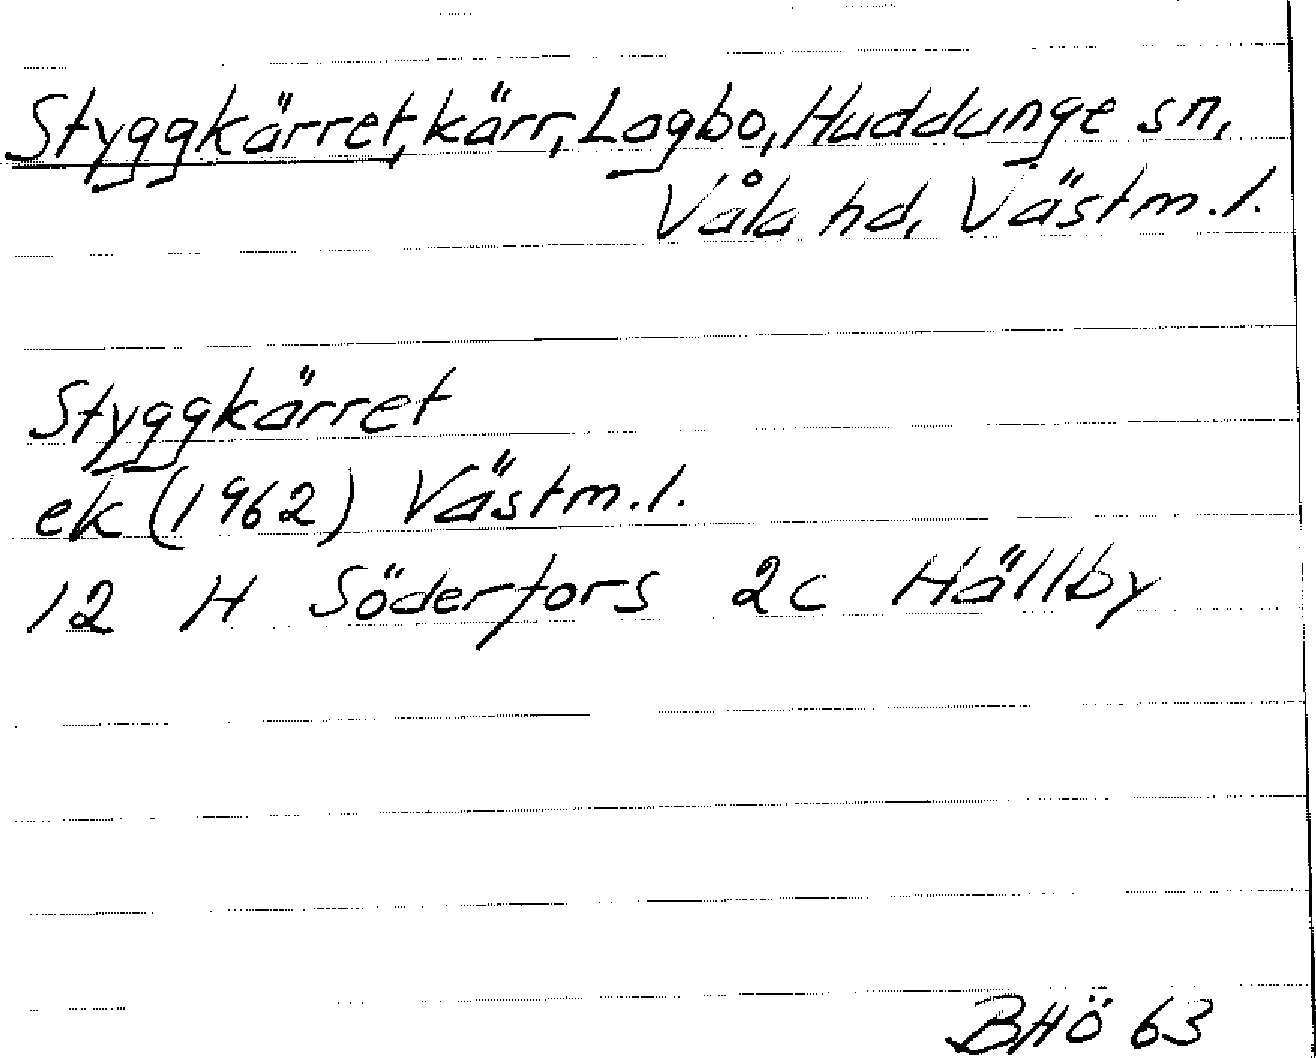 Styggkärret, kärr, Lagbo, Huddunge sn,
Våla hd, Västm.l.
Styggkärret
ek (1962) Västm.l.
12 H Söderfors 2c Hällby
BHÖ 63